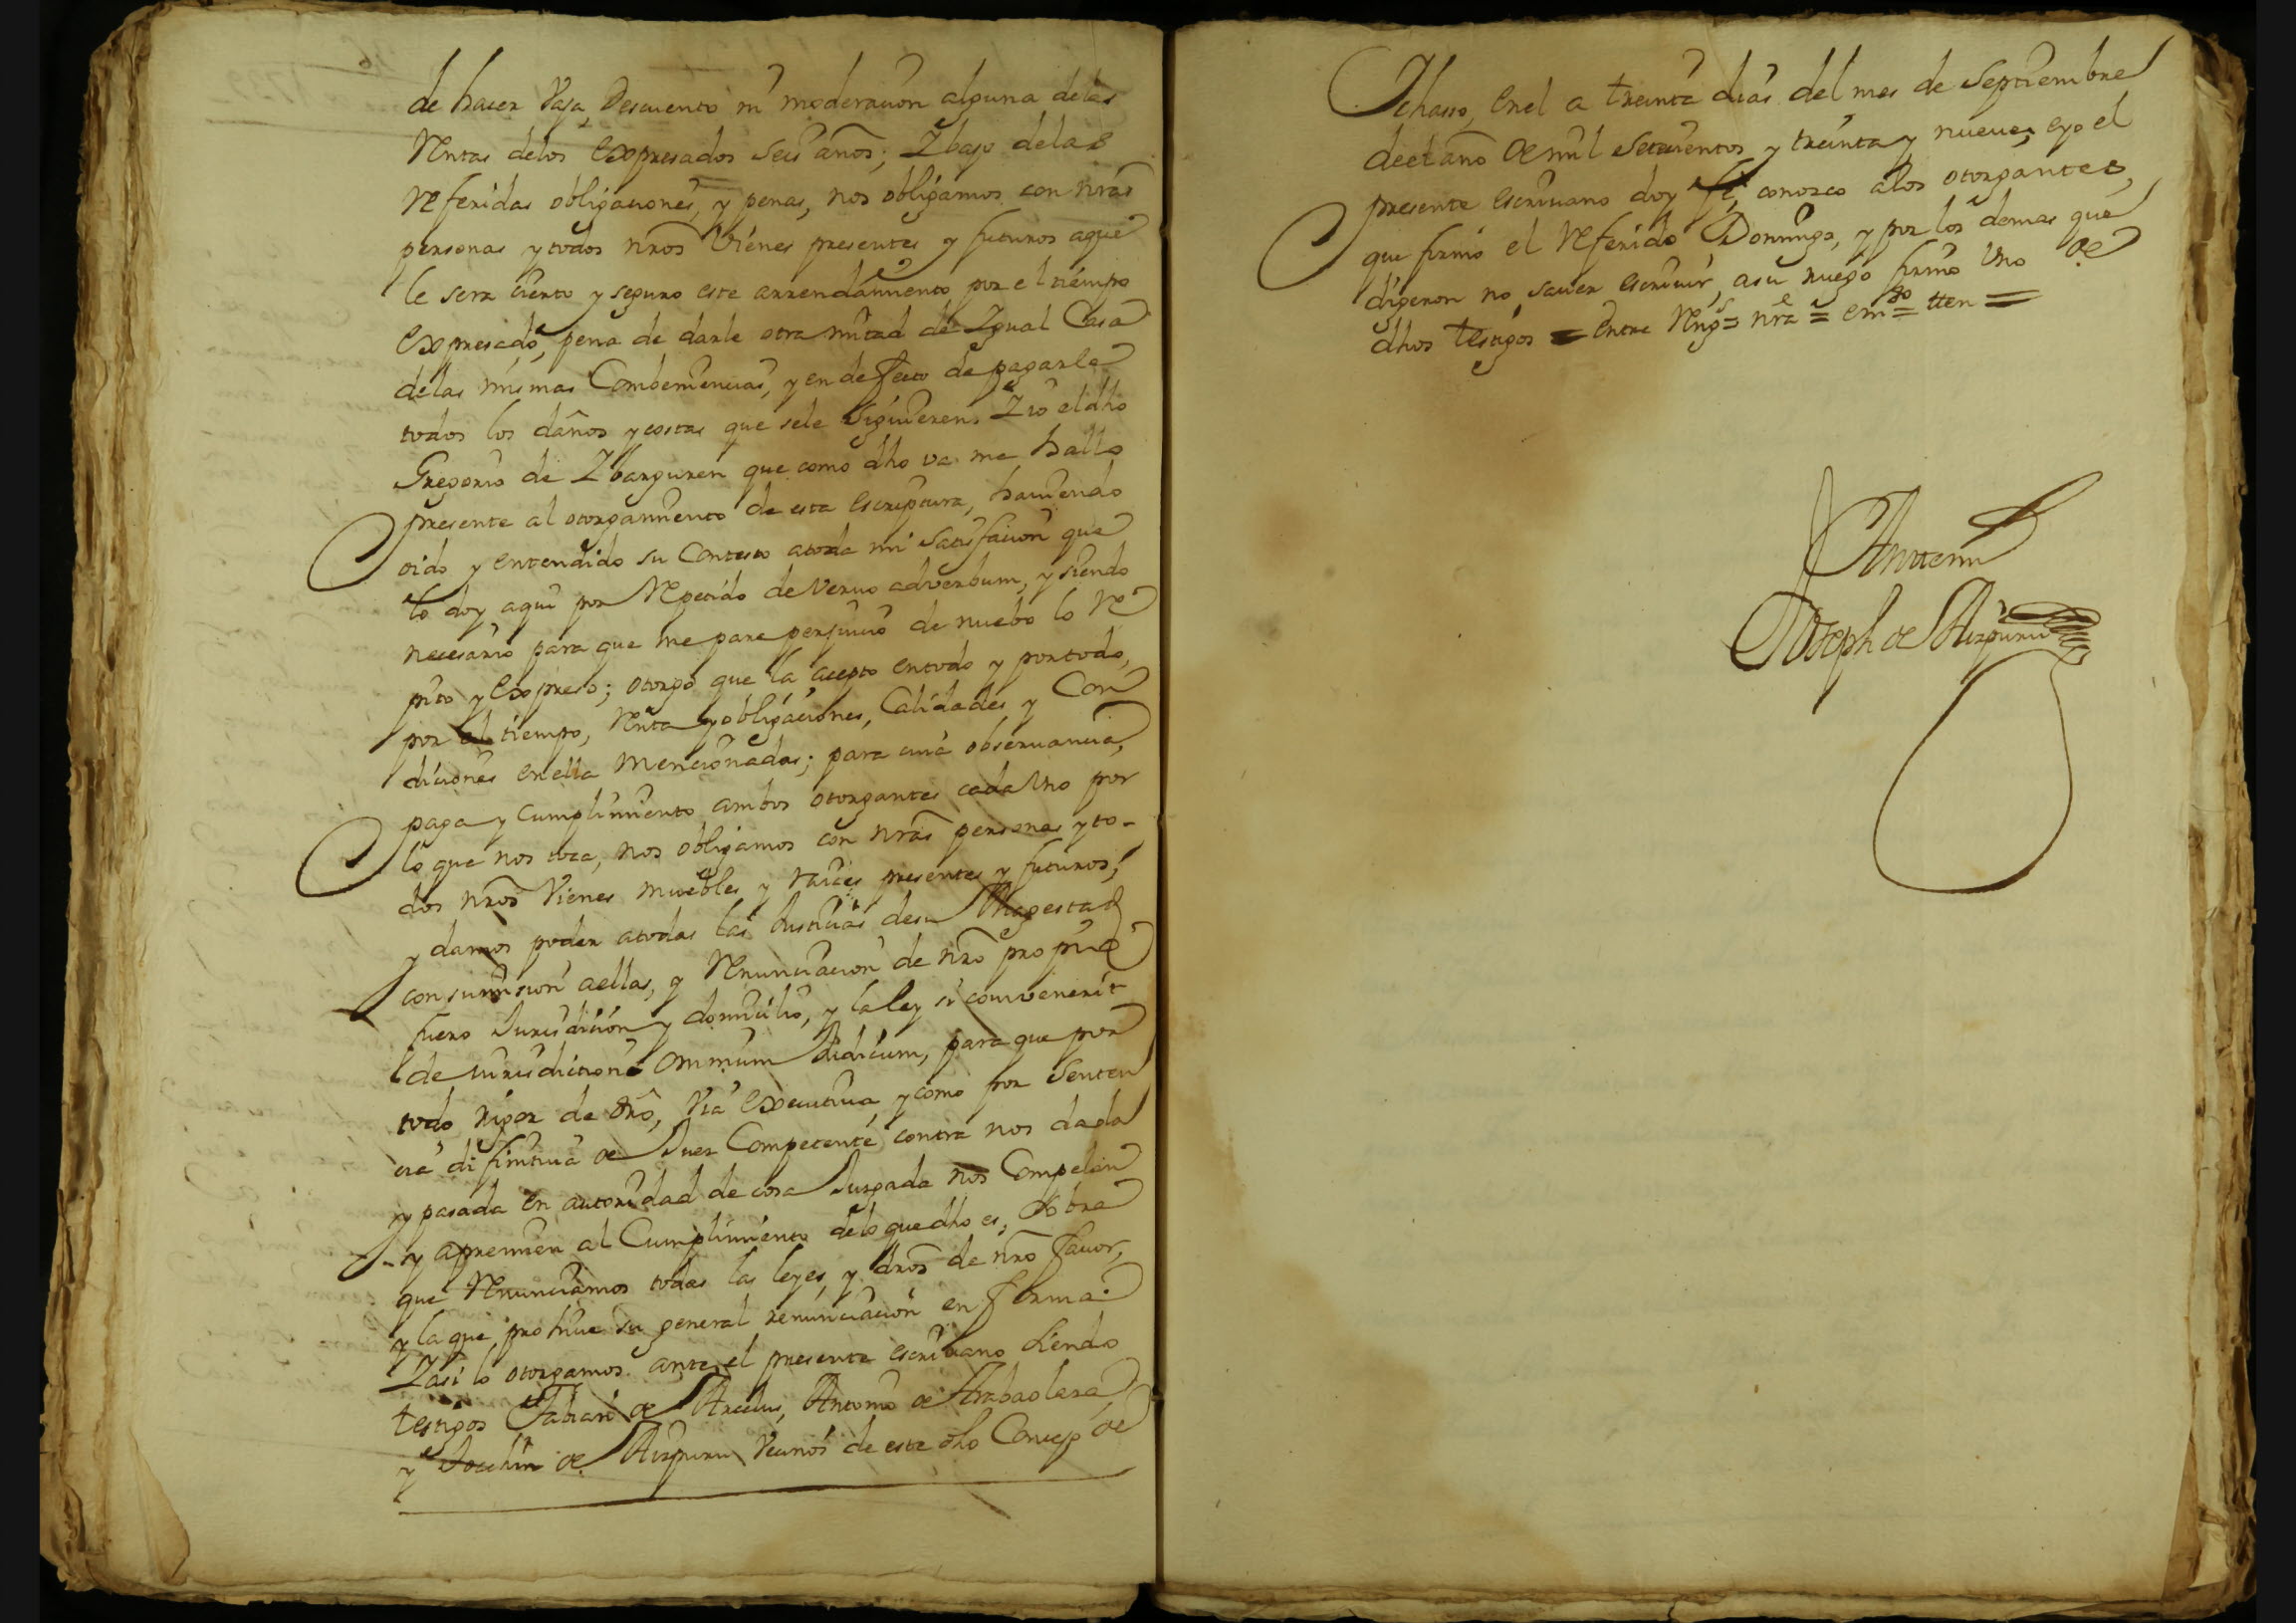 de hacer vaja, Descuento ni moderacion alguna delas
Rentas delos expresados seis años; Y bajo delas
Referidas obligaciones, y penas, nos obligamos con nras
personas y todos nros Vienes presentes y futuros aque
le sera cierto y seguro este arrendamiento por el tiempo
expresado, pena de darle otra mitad de Ygual Casa
delas mismas Combeniencias, y en defecto de pagarle
todos los daños y costas que sele siguieren. Y io el dho
Gregorio de Ybarguren que como dho va me hallo
presente al otorgamiento de esta escriptura, haviendo
oido y entendido su Contesto atoda mi satisfacion que
lo doy aqui por Repetido de Vervo adverbum, y siendo
necesario para que me pare perjuicio de nuebo lo Re
pito y expreso; otorgo que la acepto entodo y portodo,
por el tiempo, Renta y obligaciones, Calidades y Con
diciones enella mencionadas; para cuia observancia,
paga y Cumplimiento ambos otorgantes cada Uno por
lo que nos toca, nos obligamos con nras personas y to-
dos nros Vienes muebles y raices presentes y futuros;
y damos poder atodas las Justicias desu Magestad
con sumision aellas, y Renunciacion de nro propio
fuero Jurisdicion y domicilio, y la ley si convenerit
de Jurisdictione omnium Judicum, para que por
todo rigor de dro, via executiva y como por senten
cia difinitiva de Juez Competente contra nos dada
y pasada en autoridad de cosa Juzgada nos Compelan
y apremien al Cumplimiento delo que dho es, sobre
que Renunciamos todas las leyes, y dros de nro favor,
y la que prohive su general renunciacion en forma.
Y asi lo otorgamos ante el presente escrivano siendo
testigos Fabian de Arcelus, Antonio de Arabaolaza,
y Joachin de Aizpuru Vecinos de este dho Concejo de
Ichasso, enel a treinta dias del mes de Septiembre
deel año de mil setecientos y treinta y nueve, eyo el
presente escrivano doy fe, conozco alos otorgantes,
que firmo el Referido Domingo, y por los demas que
digeron no saver escrivir, asu ruego firmo Uno de
dhos testigos = entre Reng.s = nra = em.do = tien =
Ante mi
Joseph de Aizpuru